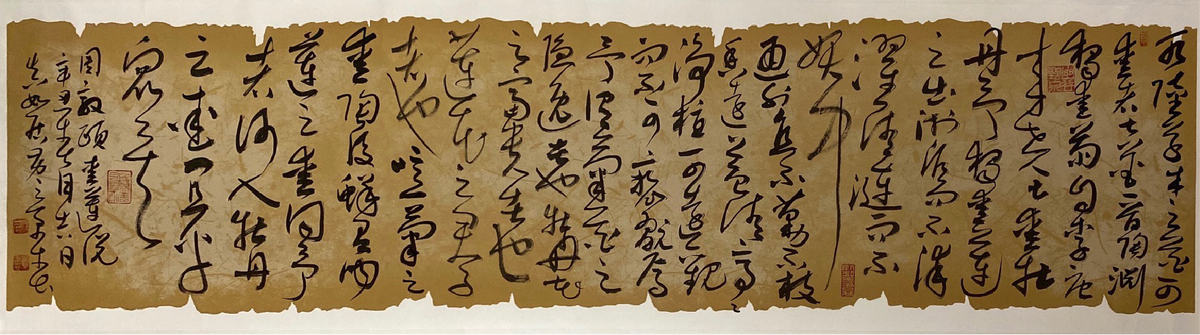 水陸草木之花可
愛者甚蕃晉陶淵
獨愛菊自李唐
来世人甚愛牡
丹予獨愛蓮
之出淤泥而不染
濯清漣而不
妖中
通外直不蔓不枝
香遠益清亭
淨植可遠觀
而不可褻玩焉
予謂菊花之
隱逸者也牡丹花
之富貴者也
蓮花之君子
者也噫菊之
愛陶後鮮有聞
蓮之愛同予
者何人牡丹
之愛宜乎
眾矣
周敦頤愛蓮說
辛丑年 月 日